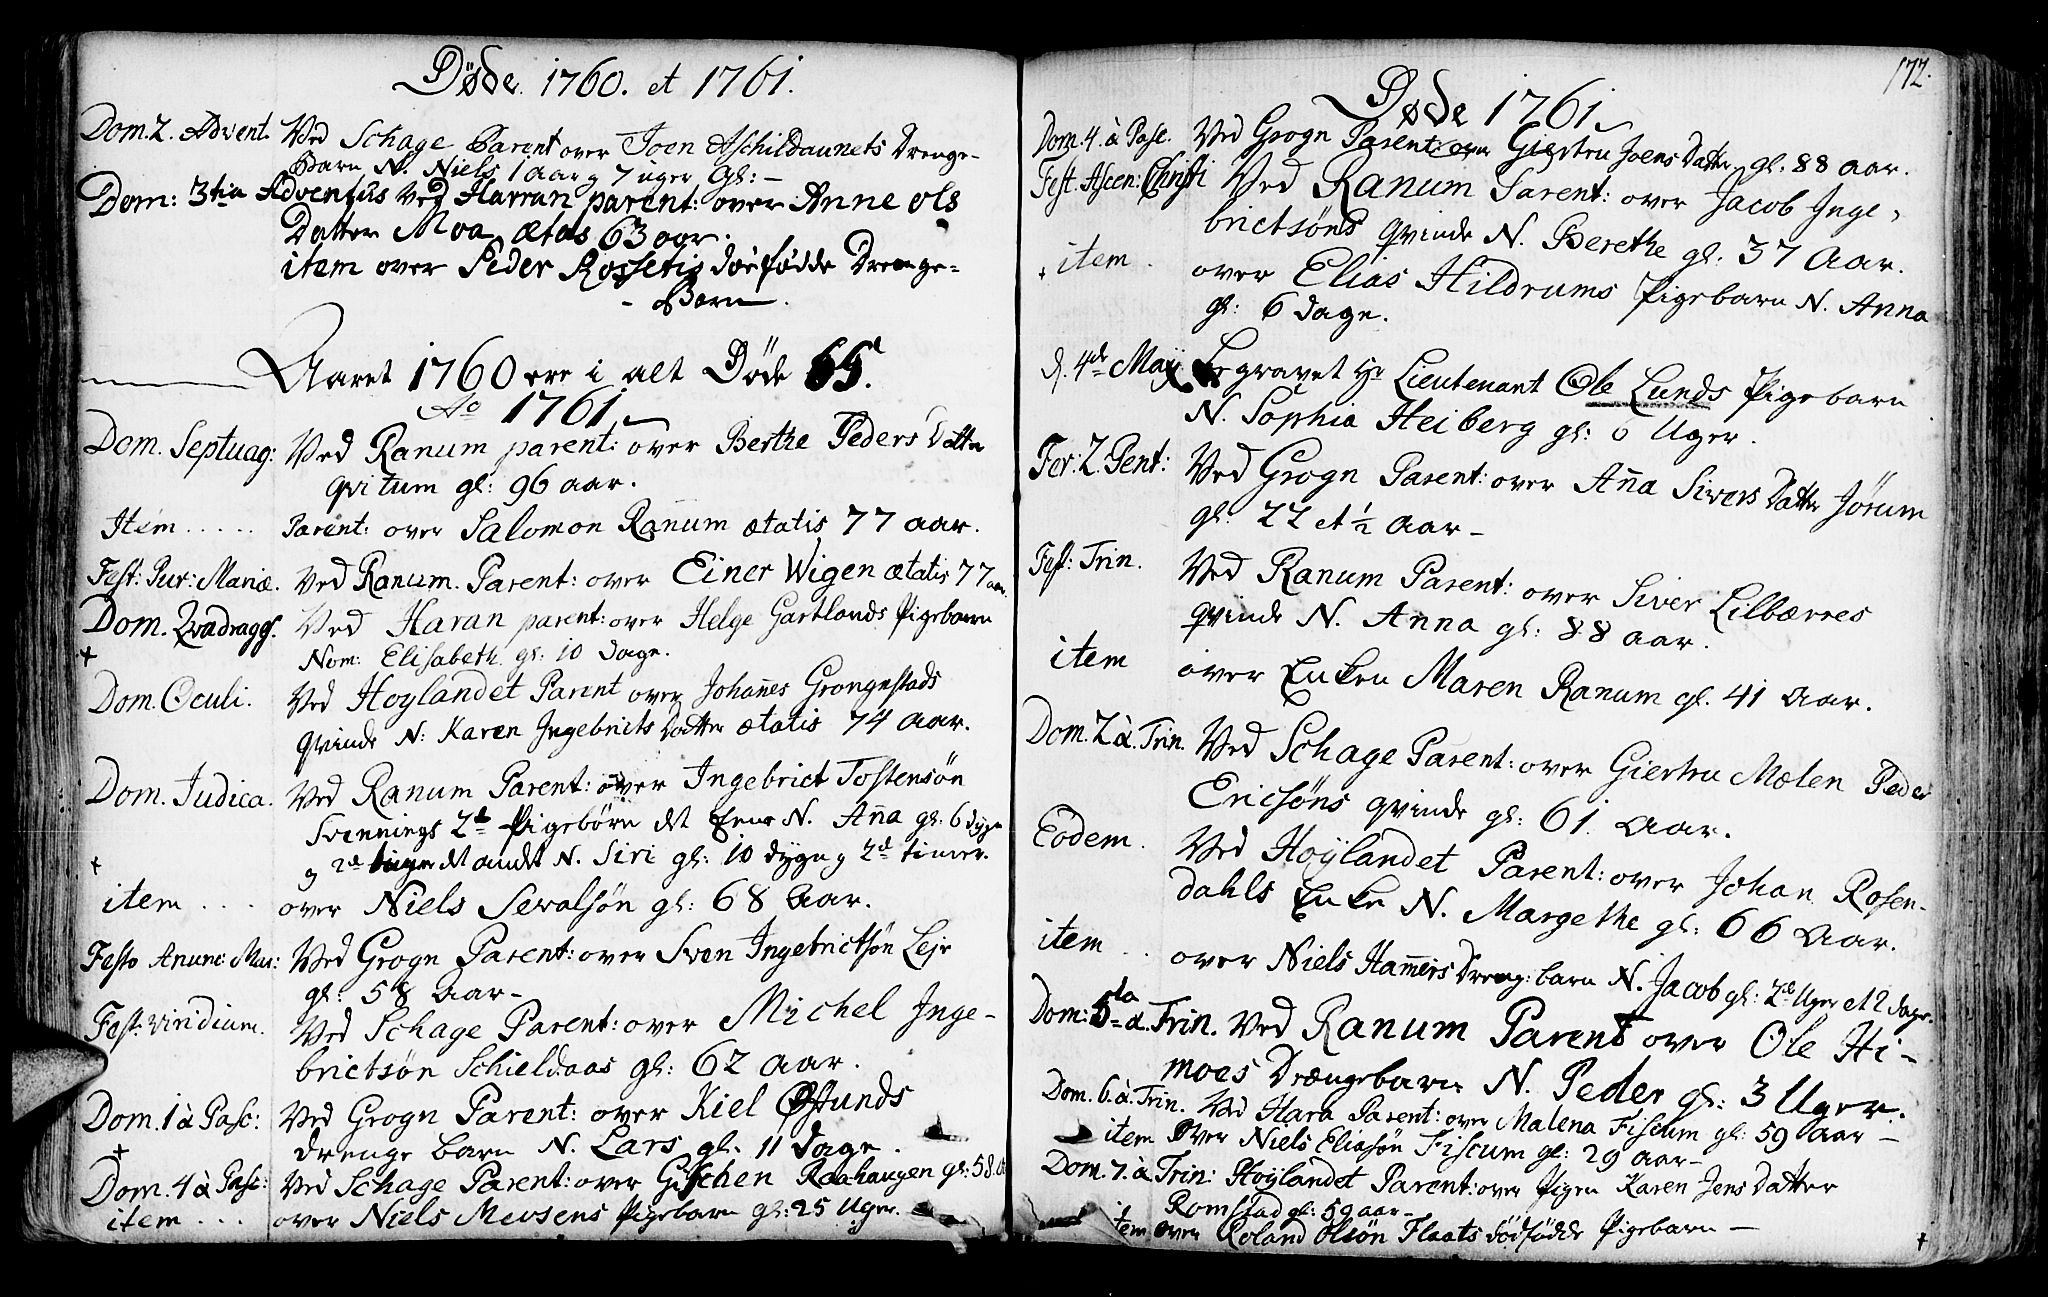 Døde 1760. et 1761.
Dom. 2. Advent. Ved Schage Parent over Joen Aschildaunets Drenge-
Barn N. Niels 1 aar og 7 uger gl: –
Dom: 3tia Adventus ved Harran parent: over Anne Ols
Datter Moa ætas 63 aar.
item over Peder Rossetis døefødde Drenge-
Barn.
Aaret 1760 ere i alt Døde
Ao 1761.
Dom. Septuag: Ved Ranum parent: over Berthe Peders Datter
Qvitum gl: 96 aar.
Item ..... Parent: over Salomon Ranum ætatis 77 aar.
Fest: Pur: Mariæ. Ved Ranum. Parent: over Einer Wigen ætatis 77 aar.
Dom. Qvadragg. Ved Haran parent: over Helge Gartlands Pigebarn
Nom: Elisabeth. gl: 10 dage.
Dom. Oculi. Ved Hoylandet Parent over Johañes Grongnstads
qvinde N: Karen Ingebrits Datter ætatis 74 aar.
Dom. Judica. Ved Ranum Parent: over Ingebrict Tostensøn
Svennings 2de Pigebørn det Eene N. Aña gl: 6 dygn
og 2de det andet N. Siri gl: 10 dygn og 2de timer.
item ... over Niels Sevalsøn gl: 68 Aar.
Festo Anunc: Mar: Ved Grogn Parent: over Sven Ingebrictsøn Leje
gl: 58 Aar–
Fest: viridium. Ved Schage Parent: over Michel Inge-
brictsøn Schieldaas gl: 62 aar.
Dom. 1 à Pasc: Ved Grogn Parent: over Kiel Østunds
drenge barn N. Lars gl. 11 dage.
Dom. 4 à Pasc: Ved Schage Parent: over Raahaugen gl: 58
item ... over Niels Mevsens Pigebarn gl: 25 Uger.
172.
Døde 1761.
Dom. 4. à Pasc. Ved Grogn Parent over Giertru Joens Datter gl: 88 aar.
Fest. Ascen: Christi Ved Ranum Parent: over Jacob Inge-
brictsøns qvinde N. Berethe gl: 37 Aar.
item. over Elias Hildrums Pigebarn N. Anna
gl: 6 dage.
d. 4de Maÿ Begravet Hr Lieutenant Ole Lunds Pigebarn
N. Sophia Heiberg gl: 6 Uger.
Fer: 2. Pent: Ved Grogn Parent: over Aña Sivers Datter Jørum
gl: 22 et ½ Aar–
Fest: Trin. Ved Ranum Parent: over Siver Lilbærres
qvinde N. Anna gl: 88 aar.
item over Enken Maren Ranum gl. 41 Aar.
Dom. 2 à. Trin. Ved Schage Parent: over Giertru Mælen Peder
Ericsøns qvinde gl: 61. Aar.
Eodem. Ved Hoÿlandet Parent: over Johan Rosen-
dahls Enke N. Margethe gl: 66 Aar.
item .. over Niels Ham̃ers Dreng: barn N. Jacob gl: 2de Uger et 2 dage.
Dom: 5ta à. Trin. Ved Ranum Parent over Ole Hi-
moes Drængebarn N. Peder gl: 3 Uger.
Dom. 6. à. Trin. Ved Hara Parent: over Malena Fiscum gl: 59 aar –
item Over Niels Eliasøn Fiscum gl: 29 aar–
Dom. 7. à Trin: Hoylandet Parent: over Pigen Karen Jens Datter
Romstad gl: 59 aar–
item over Roland Olsøn Flaats dødfødde Pigebarn –